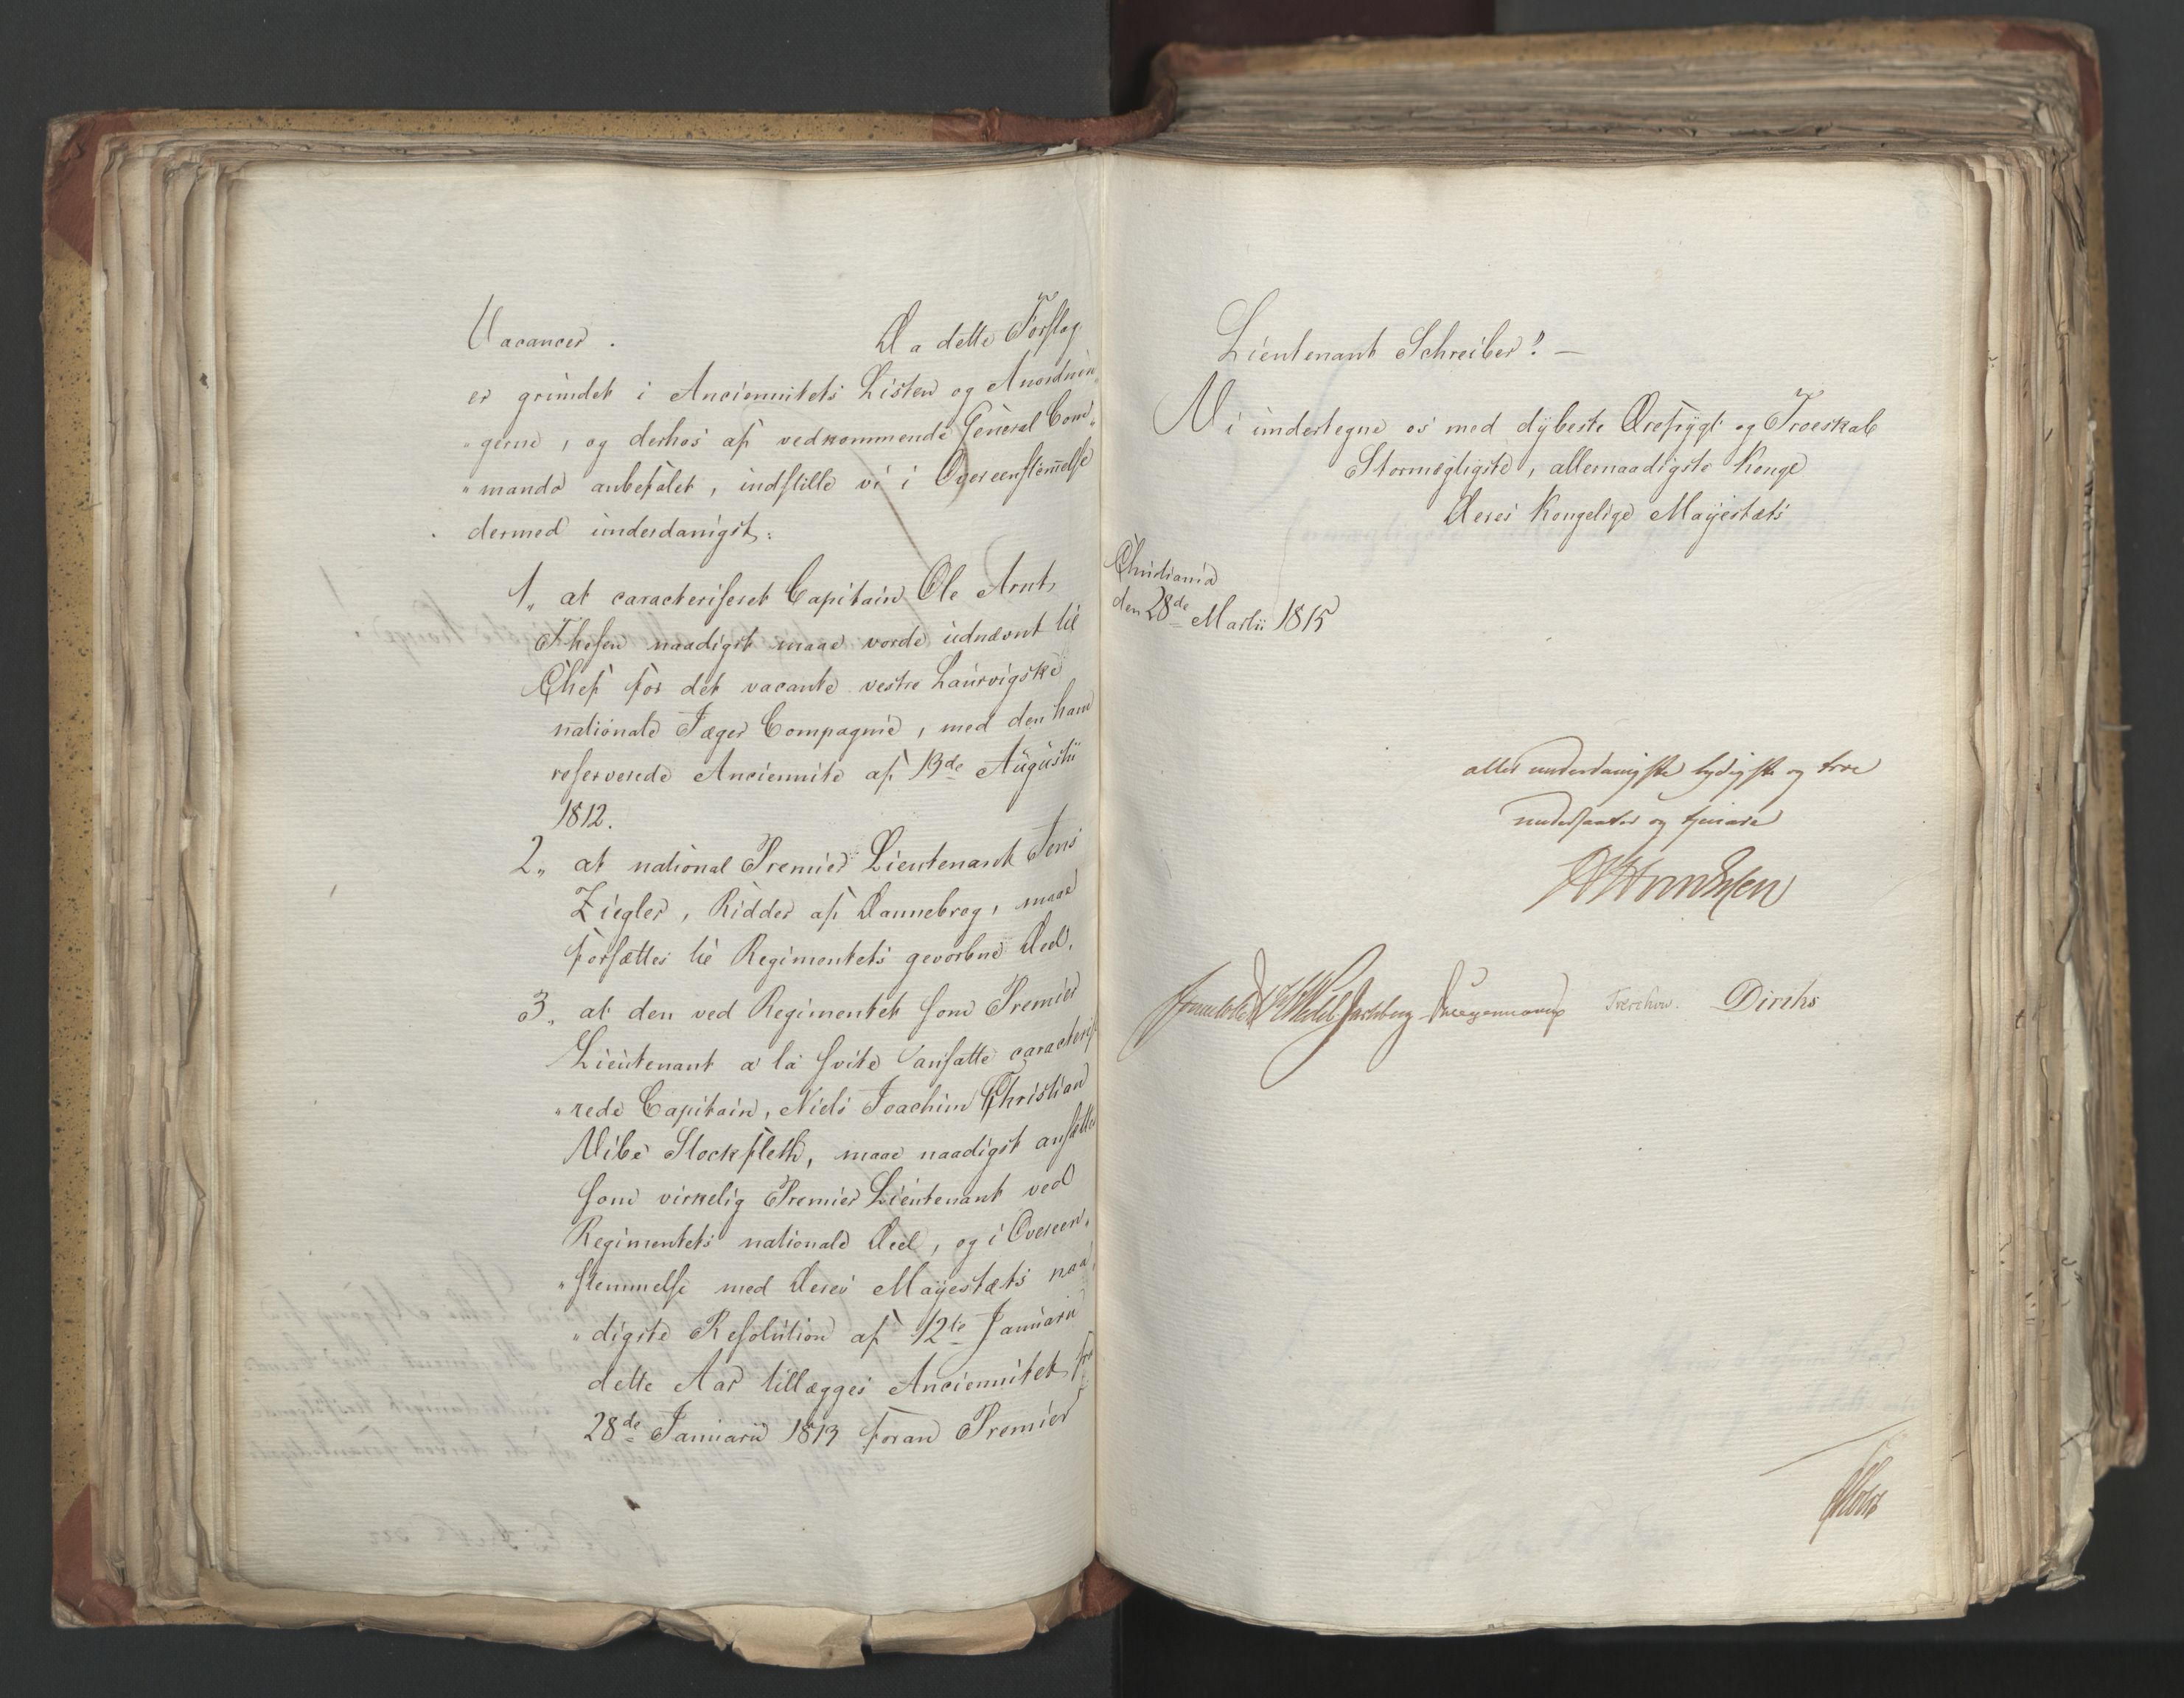 Vacancer. Da dette Forslag
er grundet i Anciennitets Listen og Anordnin„
„gerne, og derhos af vedkommende General Com„
„mando anbefalet, indstille vi i Overeenstem̅else
dermed underdanigst:
1„ at caracteriseret Capitain Ole Arntz
Thesen naadigst maae vorde udnævnt til
Chef for det vacante vestre Laurvigske
nationale Jæger Compagnie, med den ham
reserverede Anciennite af 13de Augustii
1812.
2„ at national Premier Lieutenant Jens
Ziegler, Ridder af Dannebrog, maae
forsættes til Regimentets gevorbne Deel.
3„ at den ved Regimentet som Premier
Lieutenant a la svite ansatte caracterise
„rede Capitain, Niels Joachim Christian
Vibe Stockfleth, maae naadigst ansættes
som virkelig Premier Lieutenant ved
Regimentets nationale Deel, og i Overeen„
„stemmelse med Deres Mayestæts naa„
„digste Resolution af 12te Januarii
dette Aar tillægges Anciennitet fra
28de Januarii 1813 foran Premier
Lieutenant Schreiber". —
Vi undertegne os med dybeste Ærefrygt og Troeskab
Stormægtigste, allernaadigste Konge
Deres Kongelige Mayestæts
Christiania
den 28de Martii 1815
aller underdanigste lydigste og troe
undersaatter og tjenere
Sommerhielm Wedel Jarlsberg Krogh Treschow. Diriks